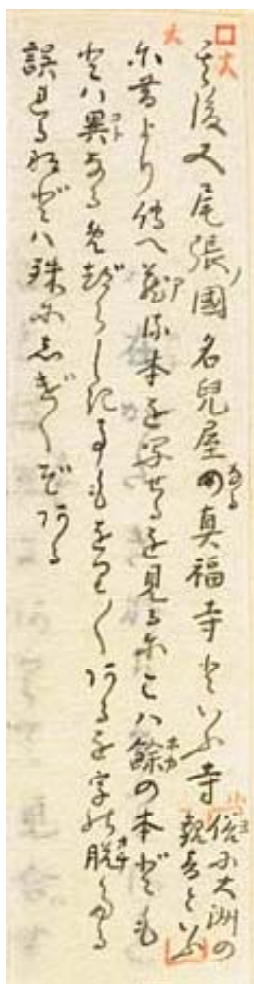 其後又尾張ノ國名兒屋なる真福寺といふ寺俗に大洲の
觀音といふ
に昔より傳へ蔵る本を写せるを見るにこハ餘ホカの本ども
とハ異コトなるめづらしき事もをり〱あるを字の脱オチたる
誤れるなどハ殊にしげくぞある